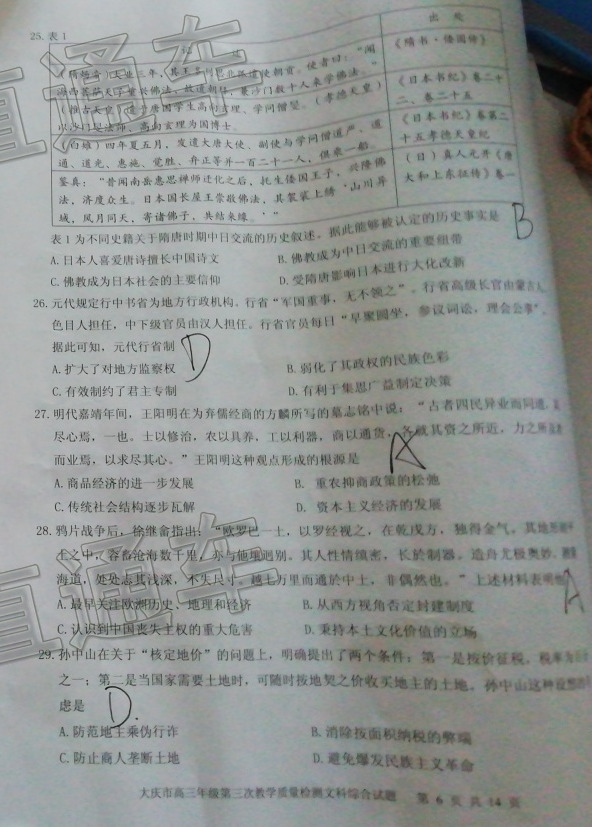 25. 表1
记 述
出 处
(隋炀帝)大业三年,其王多利思比孤遣使朝贡。使者曰:“闻
《隋书·倭国传》
海西菩萨天子重兴佛法,故遣朝拜,兼沙门数十人来学佛法。”
《日本书纪》卷二十
二、卷二十五
以沙门旻法师、高向玄理为国博士。
《日本书纪》卷第二
十五孝德天皇纪
(白雉)四年夏五月,发遣大唐大使、副使与学问僧道严、道
通、道光、惠施、觉胜、弁正等并一百二十一人,俱乘一船。
鉴真:“昔闻南岳惠思禅师迁化之后,托生倭国王子,兴隆佛
(日)真人元开《唐
法,济度众生。日本国长屋王崇敬佛法,其袈裟上绣‘山川异
大和上东征传》卷一
域,风月同天,寄诸佛子,共结来缘。’”
表1为不同史籍关于隋唐时期中日交流的历史叙述。据此能够被认定的历史事实是
B
A.日本人喜爱唐诗擅长中国诗文 B.佛教成为中日交流的重要纽带
C.佛教成为日本社会的主要信仰 D.受隋唐影响日本进行大化改新
26. 元代规定行中书省为地方行政机构。行省“军国重事,无不领之”。行省高级长官由蒙古人、
色目人担任,中下级官员由汉人担任。行省官员每日“早聚圆坐,参议词讼,理会公事”。
据此可知,元代行省制
D
A.扩大了对地方监察权 B.弱化了其政权的民族色彩
C.有效制约了君主专制 D.有利于集思广益制定决策
27. 明代嘉靖年间,王阳明在为弃儒经商的方麟所写的墓志铭中说:“古者四民异业而同道,其
尽心焉,一也。士以修治,农以具养,工以利器,商以通货,各就其资之所近,力之所及者
而业焉,以求尽其心。”王阳明这种观点形成的根源是
A
A.商品经济的进一步发展 B. 重农抑商政策的松弛
C.传统社会结构逐步瓦解 D. 资本主义经济的发展
28. 鸦片战争后,徐继畬指出:“欧罗巴一土,以罗经视之,在乾戌方,独得金气。其地形
土之中,容畜沧海数千里,亦与他壤迥别。其人性情缜密,长於制器。造舟尤极奥妙,
海道,处处志其浅深,不失尺寸。越七万里而通於中土,非偶然也。”上述材料表明他
A
A.最早关注欧洲历史、地理和经济 B.从西方视角否定封建制度
C.认识到中国丧失主权的重大危害 D.秉持本土文化价值的立场
29. 孙中山在关于“核定地价”的问题上,明确提出了两个条件:第一是按价征税,税率为百分
之一;第二是当国家需要土地时,可随时按地契之价收买地主的土地。孙中山这种设想的考
虑是
D.
A.防范地主乘伪行诈 B.消除按面积纳税的弊端
C.防止商人垄断土地 D.避免爆发民族主义革命
大庆市高三年级第三次教学质量检测文科综合试题 第 6 页 共 14 页
直通车
直通车